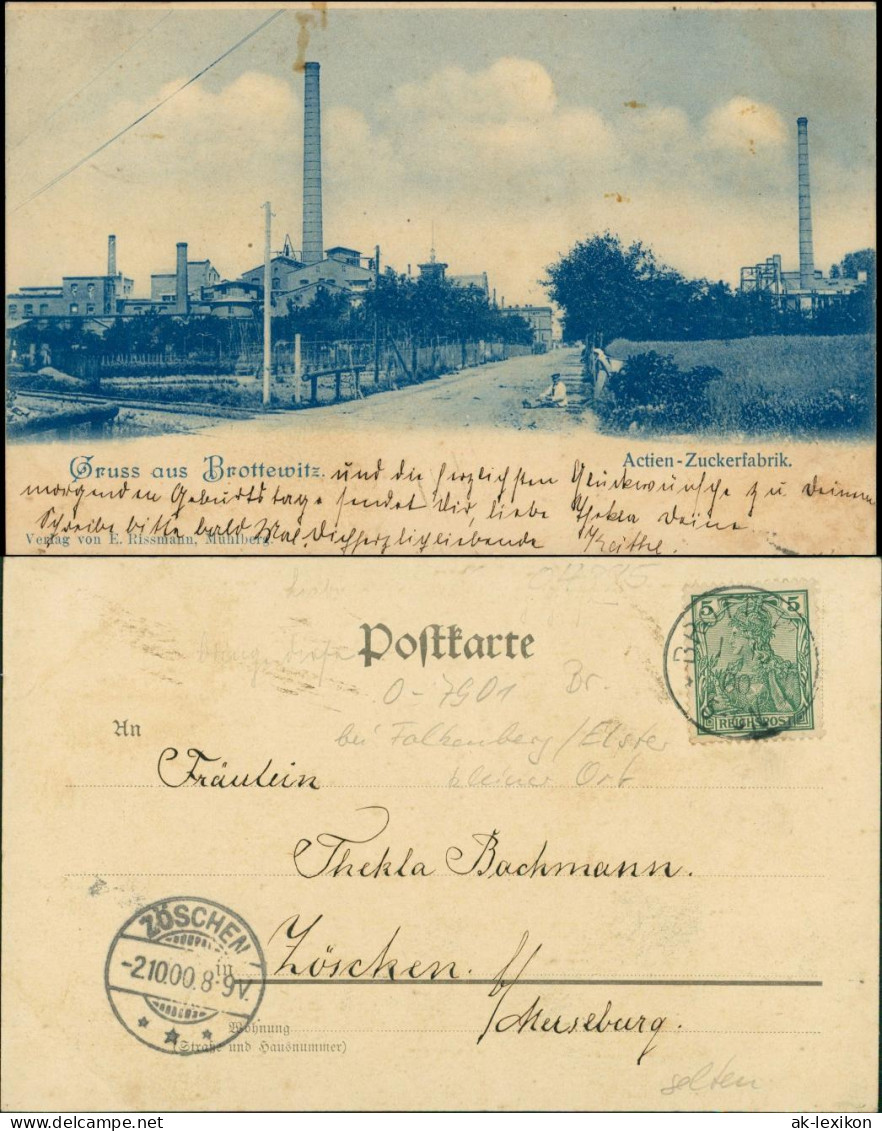 Gruss aus Brottewitz.
Actien-Zuckerfabrik.
und die herzlichsten Glückwünsche zu Deinem
morgenden Geburtstage sendet Dir, liebe Thekla Deine
Schreibe bitte bald Mal. Dich herzlich liebende Käthe.
Verlag von E. Rissmann, Mühlberg.
Postkarte
5 5
REICHSPOST
O-7901 Br.
bei Falkenberg/Elster
kleiner Ort
An
Fräulein
Thekla Bachmann.
ZÖSCHEN
-2.10.00.8-9V.
in
Zöschen. b/
Merseburg.
Wohnung
(Straße und Hausnummer)
selten
akpool
ak-lexikon.com